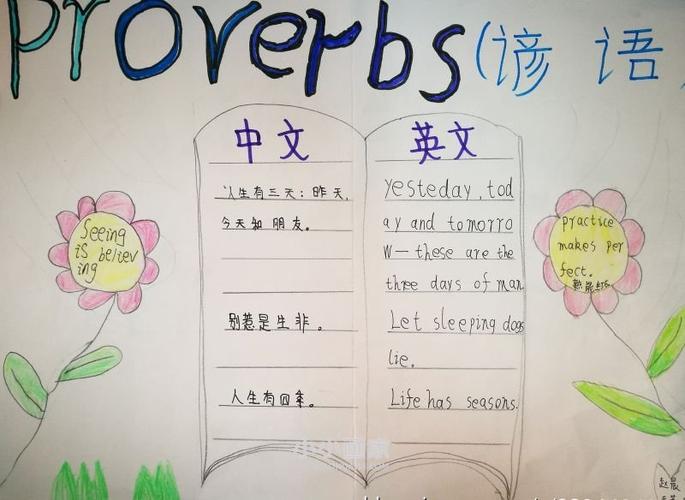 Proverbs(谚语)
中文
英文
人生有三天：昨天,
今天和朋友。
别惹是生非。
人生有四季。
yesteday, tod
ay and tomorro
w — these are the
three days of man
Let sleeping dogs
lie.
Life has seasons.
Seeing
is believ
ing
practice
makes per
fect.
熟能生巧
赵晨